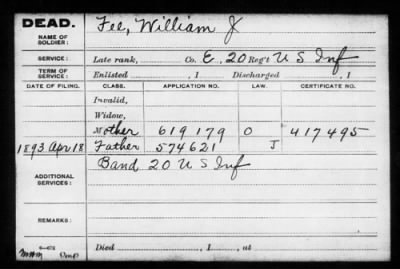 DEAD.
NAME OF SOLDIER:
Fee, William J
SERVICE:
Late rank, Co. E, 20 Reg't U S Inf
TERM OF SERVICE:
Enlisted , 1 Discharged , 1
DATE OF FILING. CLASS. APPLICATION NO. LAW. CERTIFICATE NO.
Invalid,
Widow,
Mother 619179 O 417495
1893 Apr 18 Father 574621 J
ADDITIONAL SERVICES:
Band 20 U S Inf
REMARKS:
Died , 1 , at